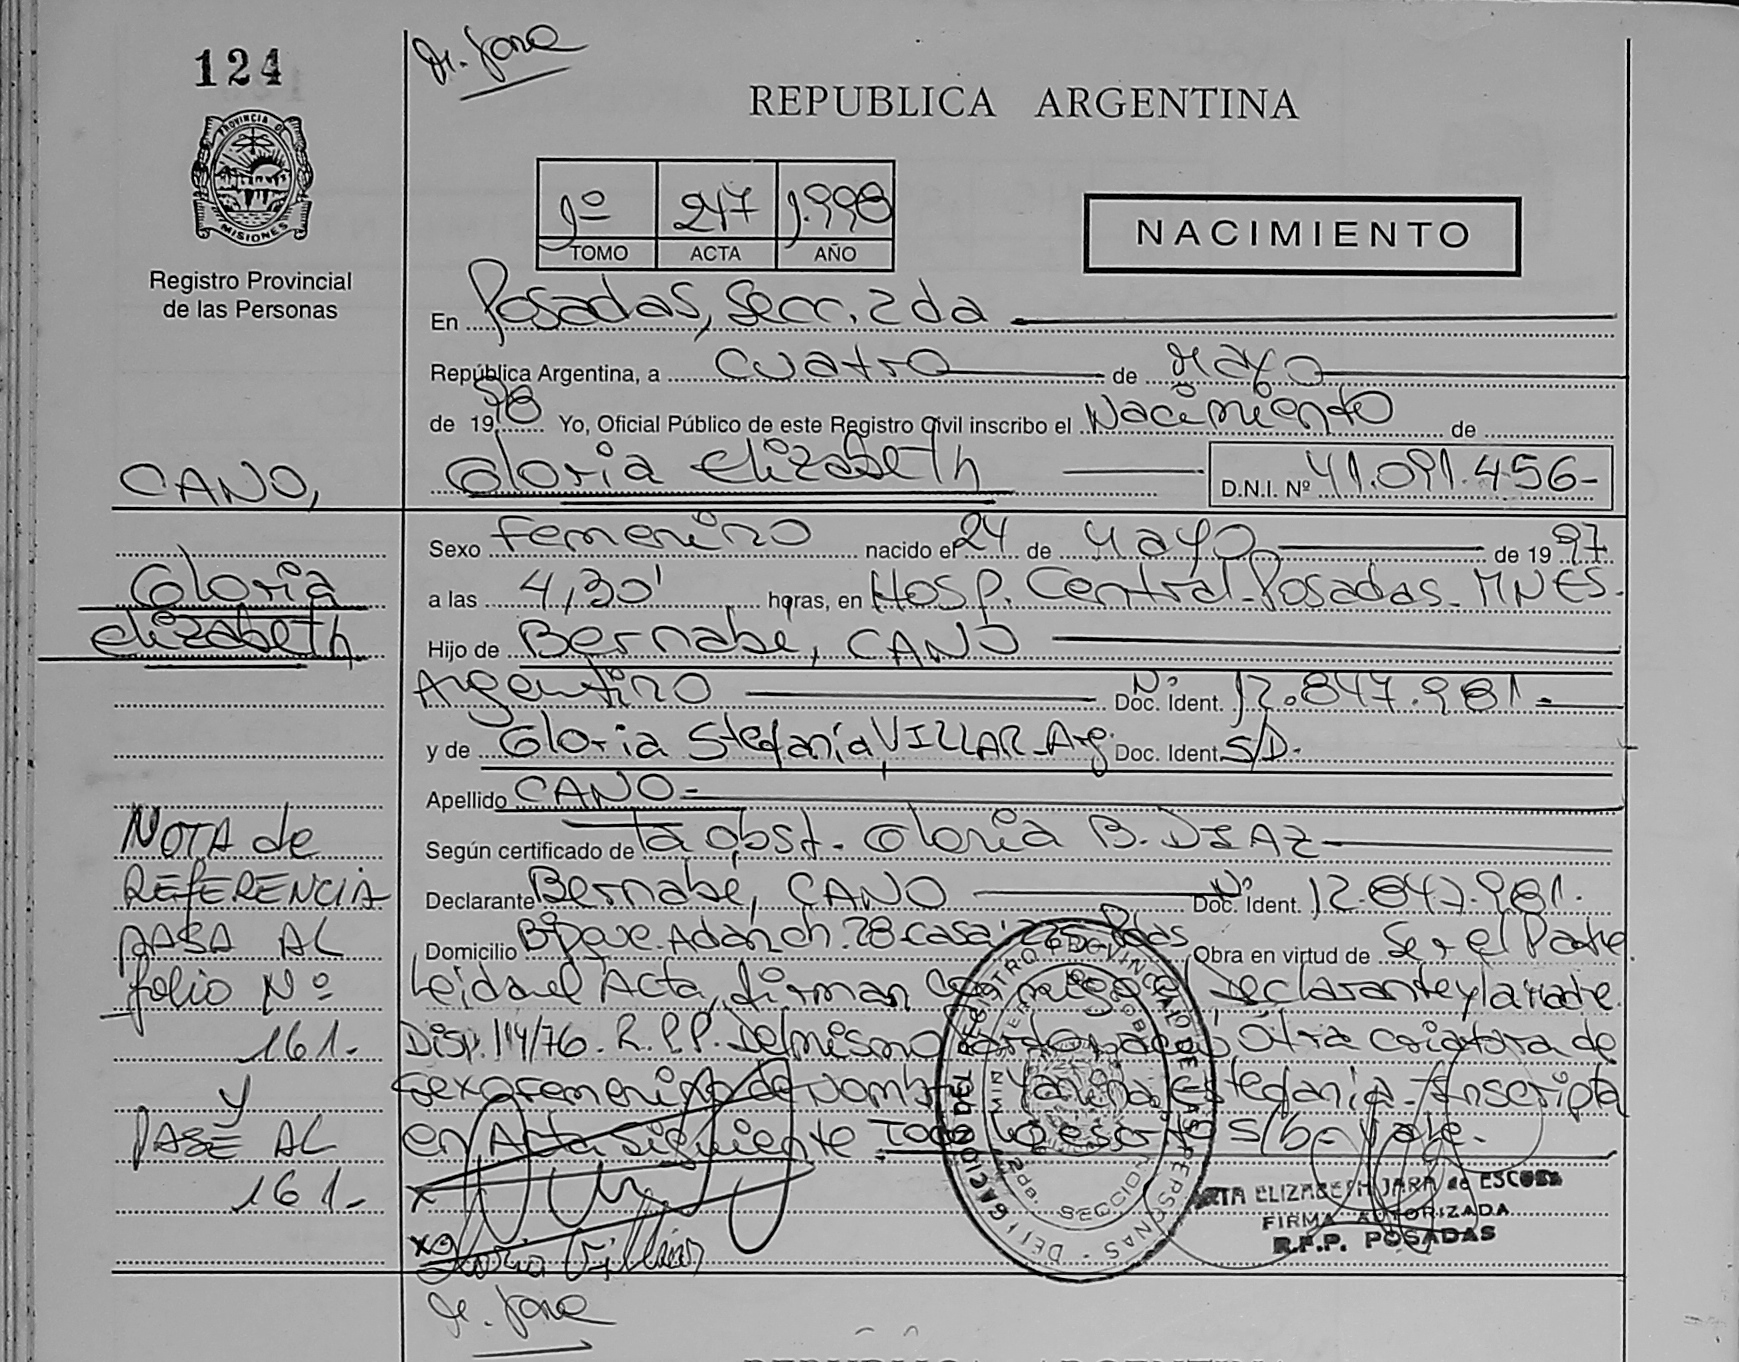 124
PROVINCIA DE
MISIONES
Registro Provincial
de las Personas
REPUBLICA ARGENTINA
1º 247 1.998
TOMO ACTA AÑO
NACIMIENTO
En Posadas, Secc. 2da
República Argentina, a cuatro de Mayo
de 1998 Yo, Oficial Público de este Registro Civil inscribo el Nacimiento de
Gloria Elizabeth D.N.I. Nº 41.091.456-
CANO,
Gloria
Elizabeth
Sexo Femenino nacido el 24 de Mayo de 1997
a las 4,30' horas, en Hosp. Central-Posadas-MNES.
Hijo de Bernabé, CANO
Argentino Nº Doc. Ident. 12.847.981.-
y de Gloria Stefanía VILLAR-Arg. Doc. Ident. S/D.-
Apellido CANO-
Según certificado de la obst. Gloria B. DIAZ-
Declarante Bernabé, CANO Nº Doc. Ident. 12.847.981.
Domicilio Adán ch. 28 casa Pdas Obra en virtud de Ser el Padre
Leida el Acta, firman conmigo Declarante y la Madre.
Disp. 114/76. R.P.P. Del mismo Otra criatura de
sexo femenino de Nombre Estefania-Inscripta
en Acta Siguiente Todo lo S/b- Vale.-
NOTA de
REFERENCIA
PASA AL
folio Nº
161.-
y
PASE AL
161.-
x
x Gloria Villar
DEL REGISTRO PROVINCIAL DE LAS PERSONAS
2da. SECCION
ELIZABETH JARA de ESCOBAR
FIRMA AUTORIZADA
R.P.P. POSADAS
REPUBLICA ARGENTINA